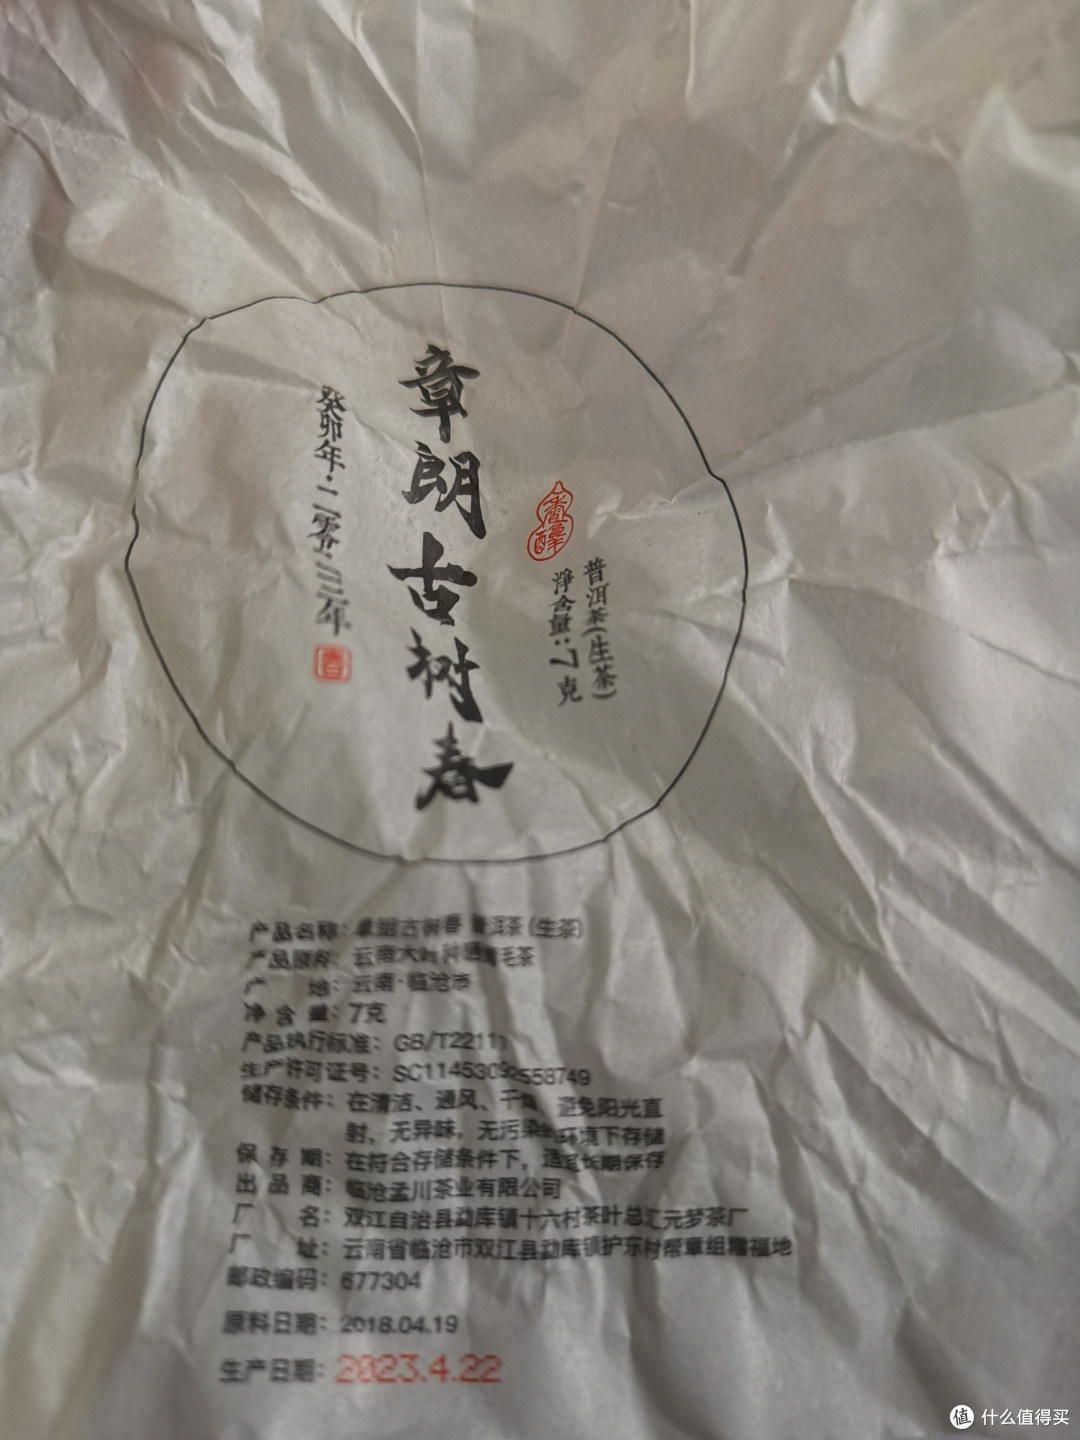 章朗古树春
癸卯年·二零二三年
香醇
普洱茶(生茶)
淨含量:7克
产品名称：章朗古树春 普洱茶(生茶)
产品原料：云南大叶种晒青毛茶
产 地：云南·临沧市
净含量：7克
产品执行标准：GB/T22111
生产许可证号：SC11453092558749
储存条件：在清洁、通风、干燥、避免阳光直
射，无异味，无污染的环境下存储
保存期：在符合存储条件下，适宜长期保存
出品商：临沧孟川茶业有限公司
厂 名：双江自治县勐库镇十六村茶叶总汇元梦茶厂
厂 址：云南省临沧市双江县勐库镇护东村帮章组糯福地
邮政编码：677304
原料日期：2018.04.19
生产日期：2023.4.22
值 什么值得买